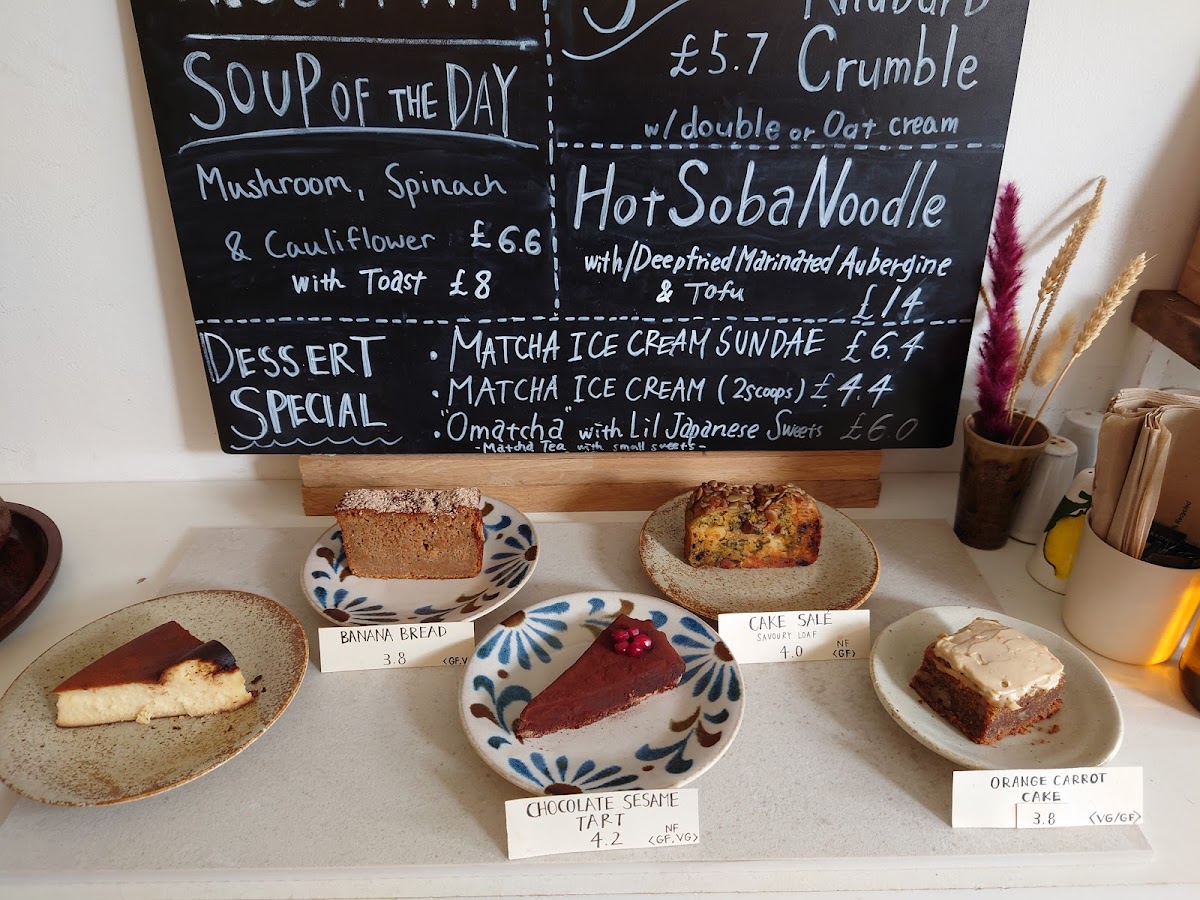 SOUP OF THE DAY
Mushroom, Spinach
& Cauliflower £6.6
with Toast £8
Rhubarb
£5.7 Crumble
w/double or Oat cream
Hot Soba Noodle
with/Deepfried Marinated Aubergine
& Tofu
£14
DESSERT
SPECIAL
• MATCHA ICE CREAM SUNDAE £6.4
• MATCHA ICE CREAM (2scoops) £4.4
• "Omatcha" with Lil Japanese Sweets £6.0
-Matcha Tea with small sweets-
BANANA BREAD
3.8 <GF.V
CAKE SALÉ
SAVOURY LOAF
4.0 NF
<GF>
CHOCOLATE SESAME
TART
4.2 NF
<GF.VG>
ORANGE CARROT
CAKE
3.8 <VG/GF>